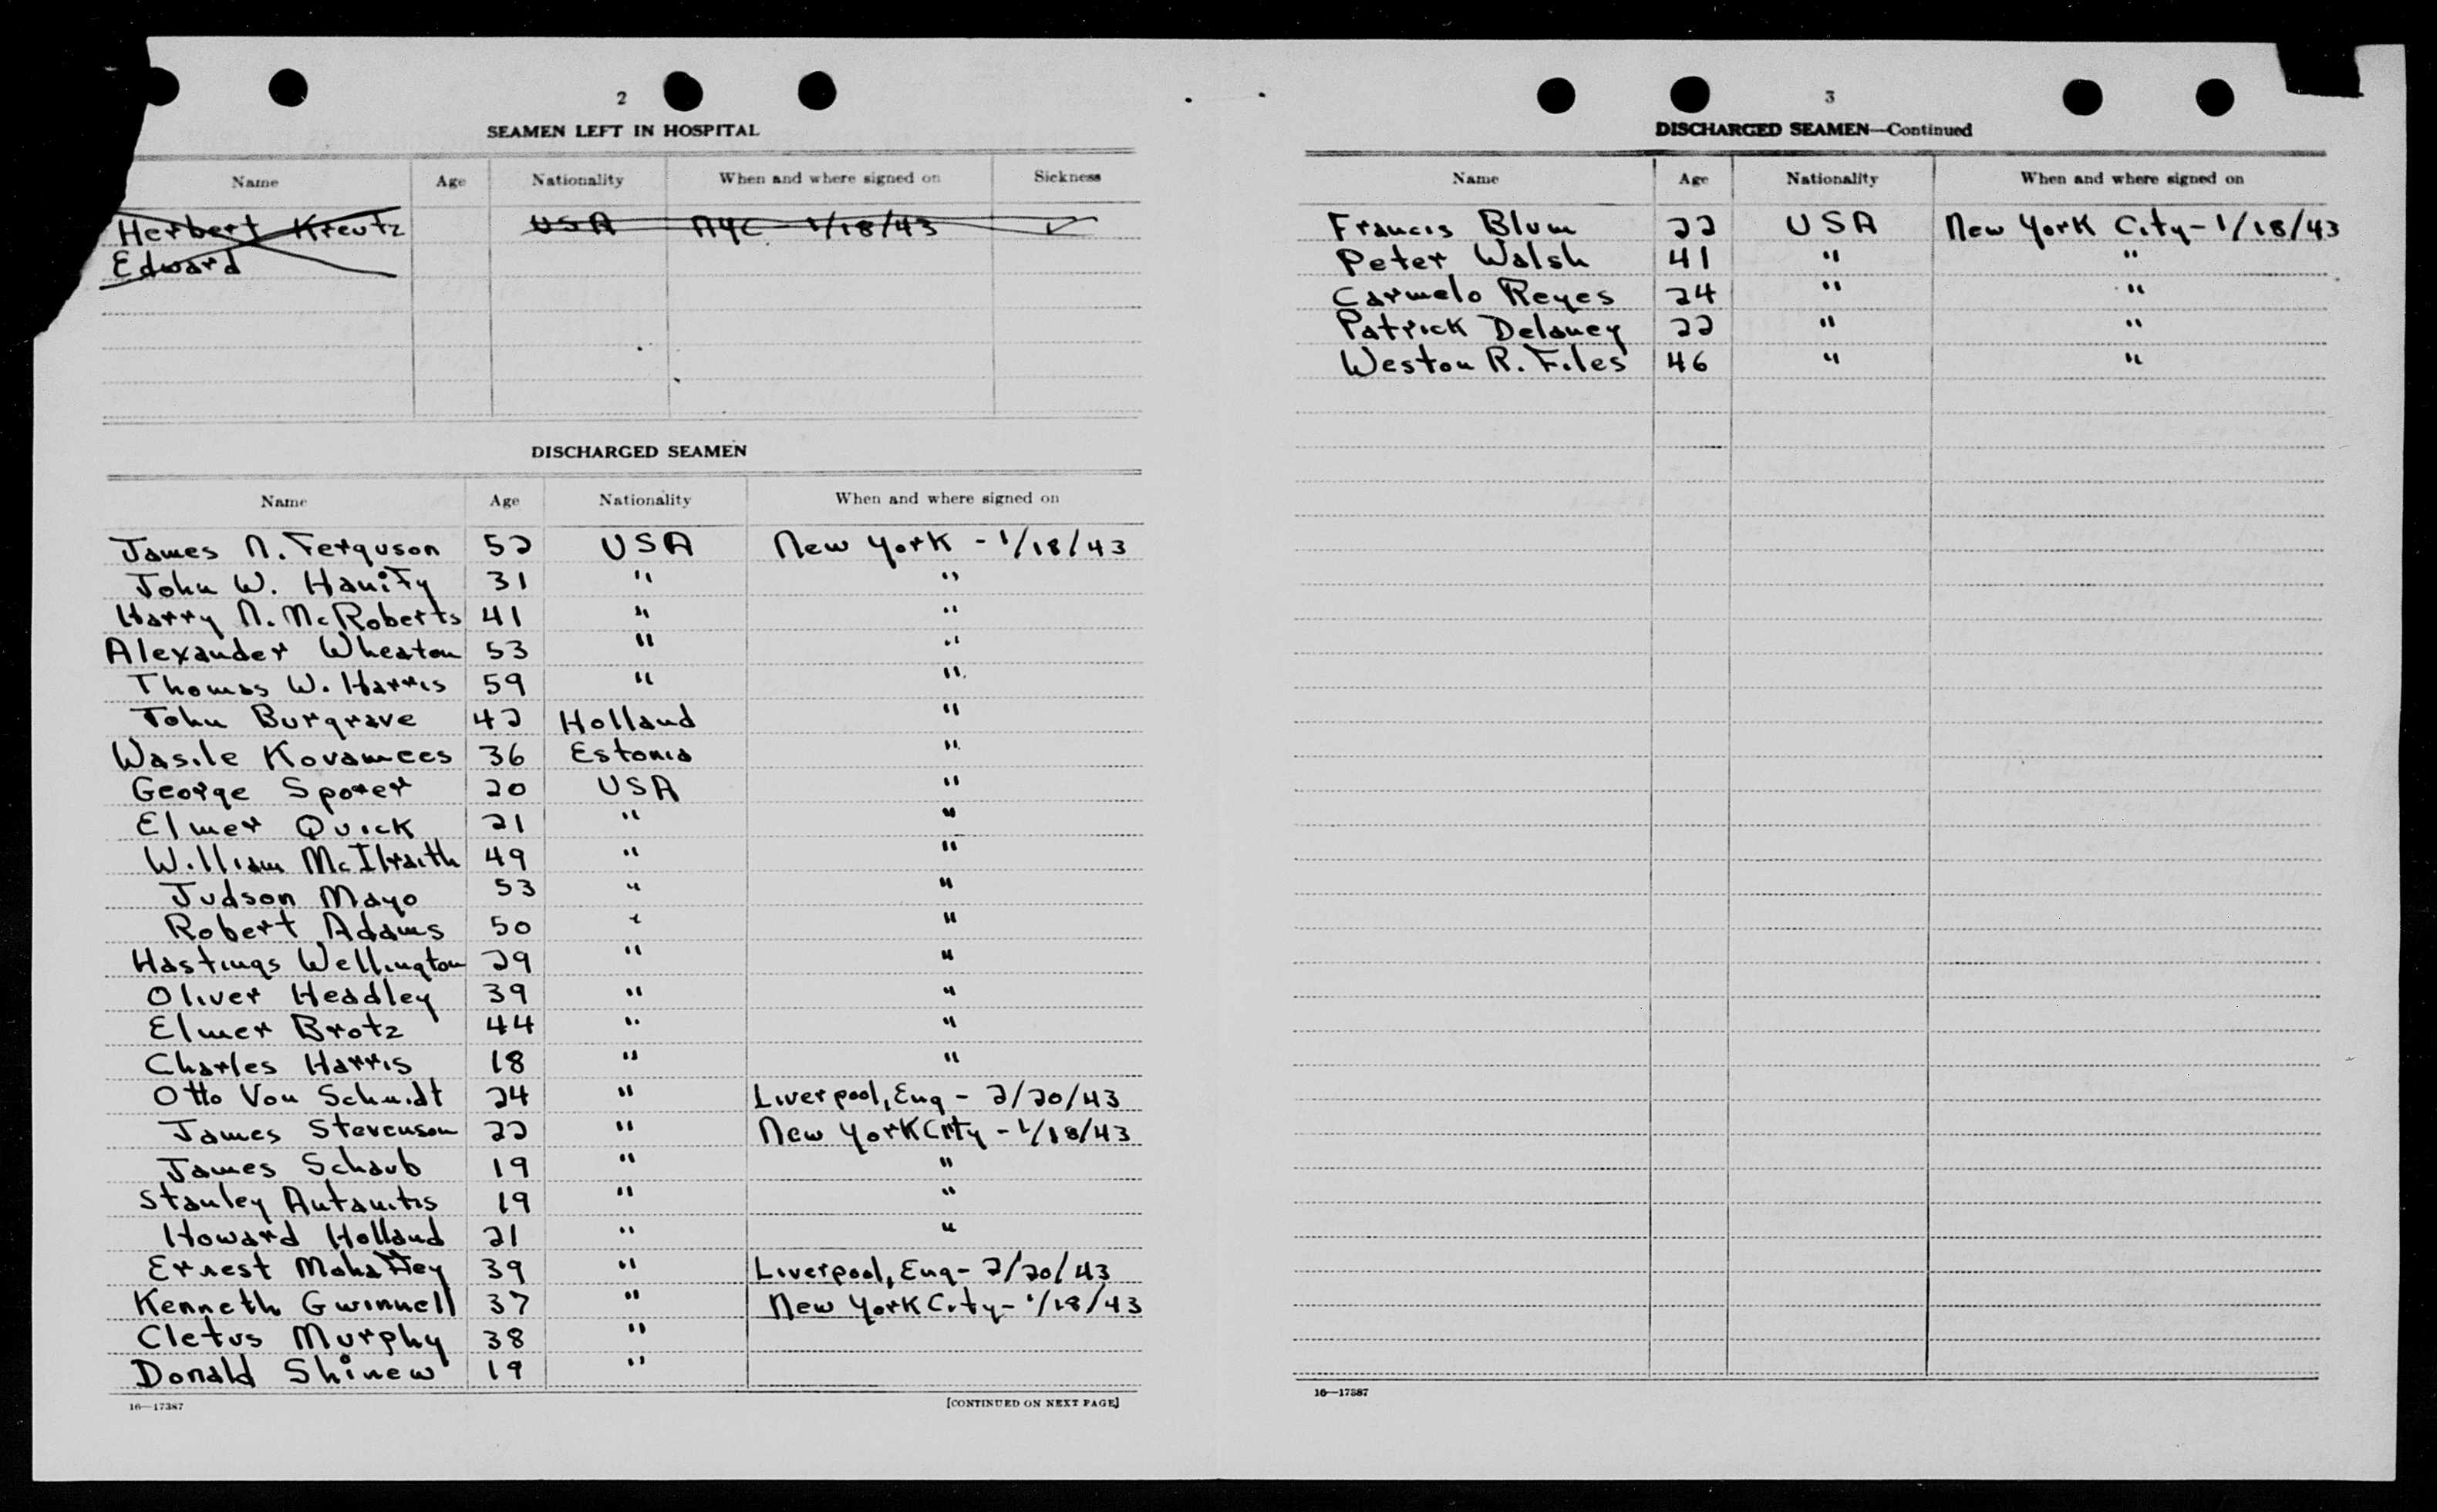 2
SEAMEN LEFT IN HOSPITAL
Name Age Nationality When and where signed on Sickness
Herbert Kreutz USA NYC 1/18/43 ✓
Edward
DISCHARGED SEAMEN
Name Age Nationality When and where signed on
James N. Ferguson 52 USA New York - 1/18/43
John W. Hanify 31 " "
Harry N. McRoberts 41 " "
Alexander Wheaton 53 " "
Thomas W. Harris 59 " "
John Burgrave 42 Holland "
Wasile Kovamees 36 Estonia "
George Sporer 20 USA "
Elmer Quick 21 " "
William McIlraith 49 " "
Judson Mayo 53 " "
Robert Adams 50 " "
Hastings Wellington 29 " "
Oliver Headley 39 " "
Elmer Brotz 44 " "
Charles Harris 18 " "
Otto Von Schmidt 24 " Liverpool, Eng - 2/20/43
James Stevenson 22 " New York City - 1/18/43
James Schaub 19 " "
Stanley Autanitis 19 " "
Howard Holland 21 " "
Ernest Mohaffey 39 " Liverpool, Eng - 2/20/43
Kenneth Gwinnell 37 " New York City - 1/18/43
Cletus Murphy 38 "
Donald Shinew 19 "
16—17387 [CONTINUED ON NEXT PAGE]
3
DISCHARGED SEAMEN—Continued
Name Age Nationality When and where signed on
Francis Blum 22 USA New York City - 1/18/43
Peter Walsh 41 " "
Carmelo Reyes 24 " "
Patrick Delaney 22 " "
Weston R. Files 46 " "
16—17387